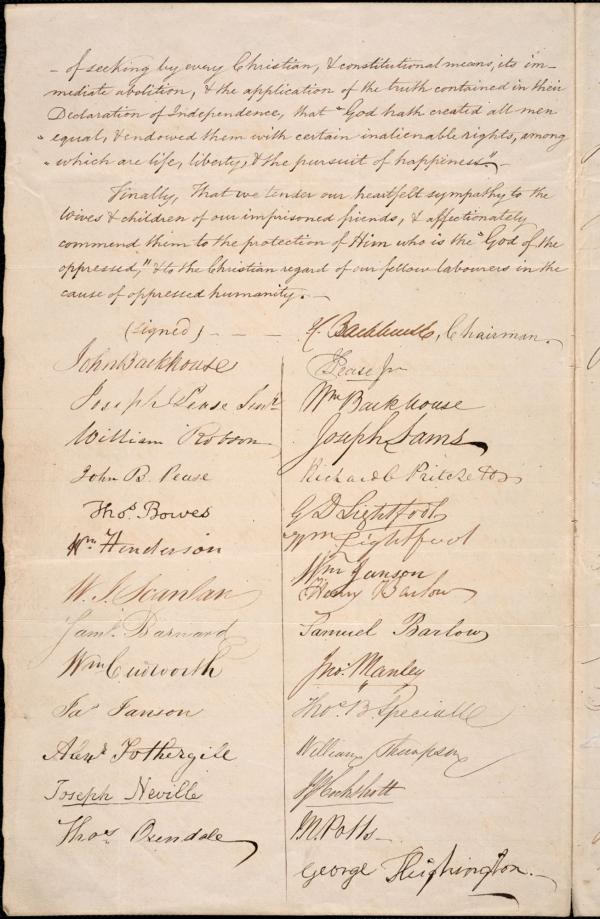 - of seeking by every Christian, & constitutional means, its im-
mediate abolition, & the application of the truth contained in their
Declaration of Independence, that "God hath created all men
" equal, & endowed them with certain inalienable rights, among
" which are life, liberty, & the pursuit of happiness". -
Finally, That we tender our heartfelt sympathy to the
Wives & children of our imprisoned friends, & affectionately
commend them to the protection of Him who is the "God of the
oppressed," & to the Christian regard of our fellow labourers in the
cause of oppressed humanity. -
(signed) - - - Backhouse, Chairman.
John Backhouse
Joseph Pease Senr.
William Robson
John B. Pease
Thos. Bowes
Wm. Henderson
W. J. Scanlan
Saml. Barnard
Wm. Cudworth
Jas Janson
Alexr. Fothergill
Joseph Neville
Thos. Oxendale
Pease Jr
Wm Backhouse
Joseph Sams
Richard C Pritchett
G D Lightfoot
Wm Lightfoot
Wm Janson
Henry Barlow
Samuel Barlow
Jno. Manley
Thos. B. Speciall
William Thompson
M. Potts
George Heighington. -